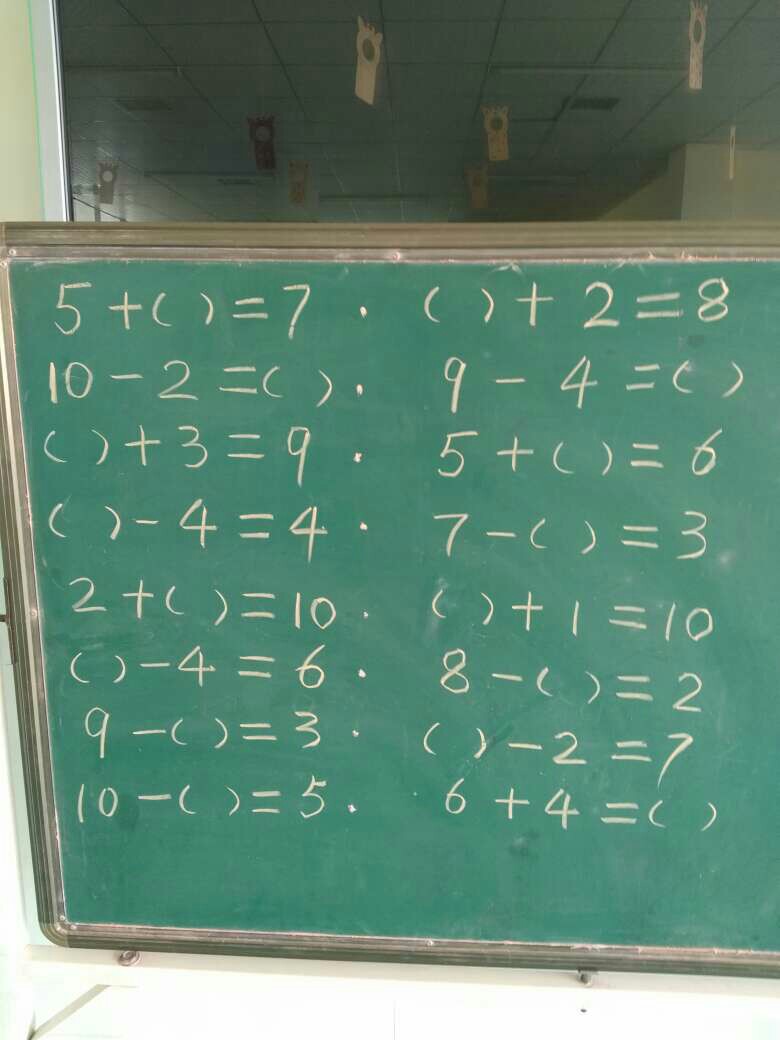 5+( )=7 . ( )+2=8
10-2=( ). 9-4=( )
( )+3=9 . 5+( )=6
( )-4=4 . 7-( )=3
2+( )=10 . ( )+1=10
( )-4=6 . 8-( )=2
9-( )=3 . ( )-2=7
10-( )=5 . 6+4=( )